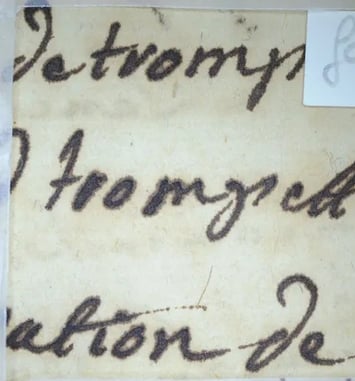 De tromp
trompett
ation de